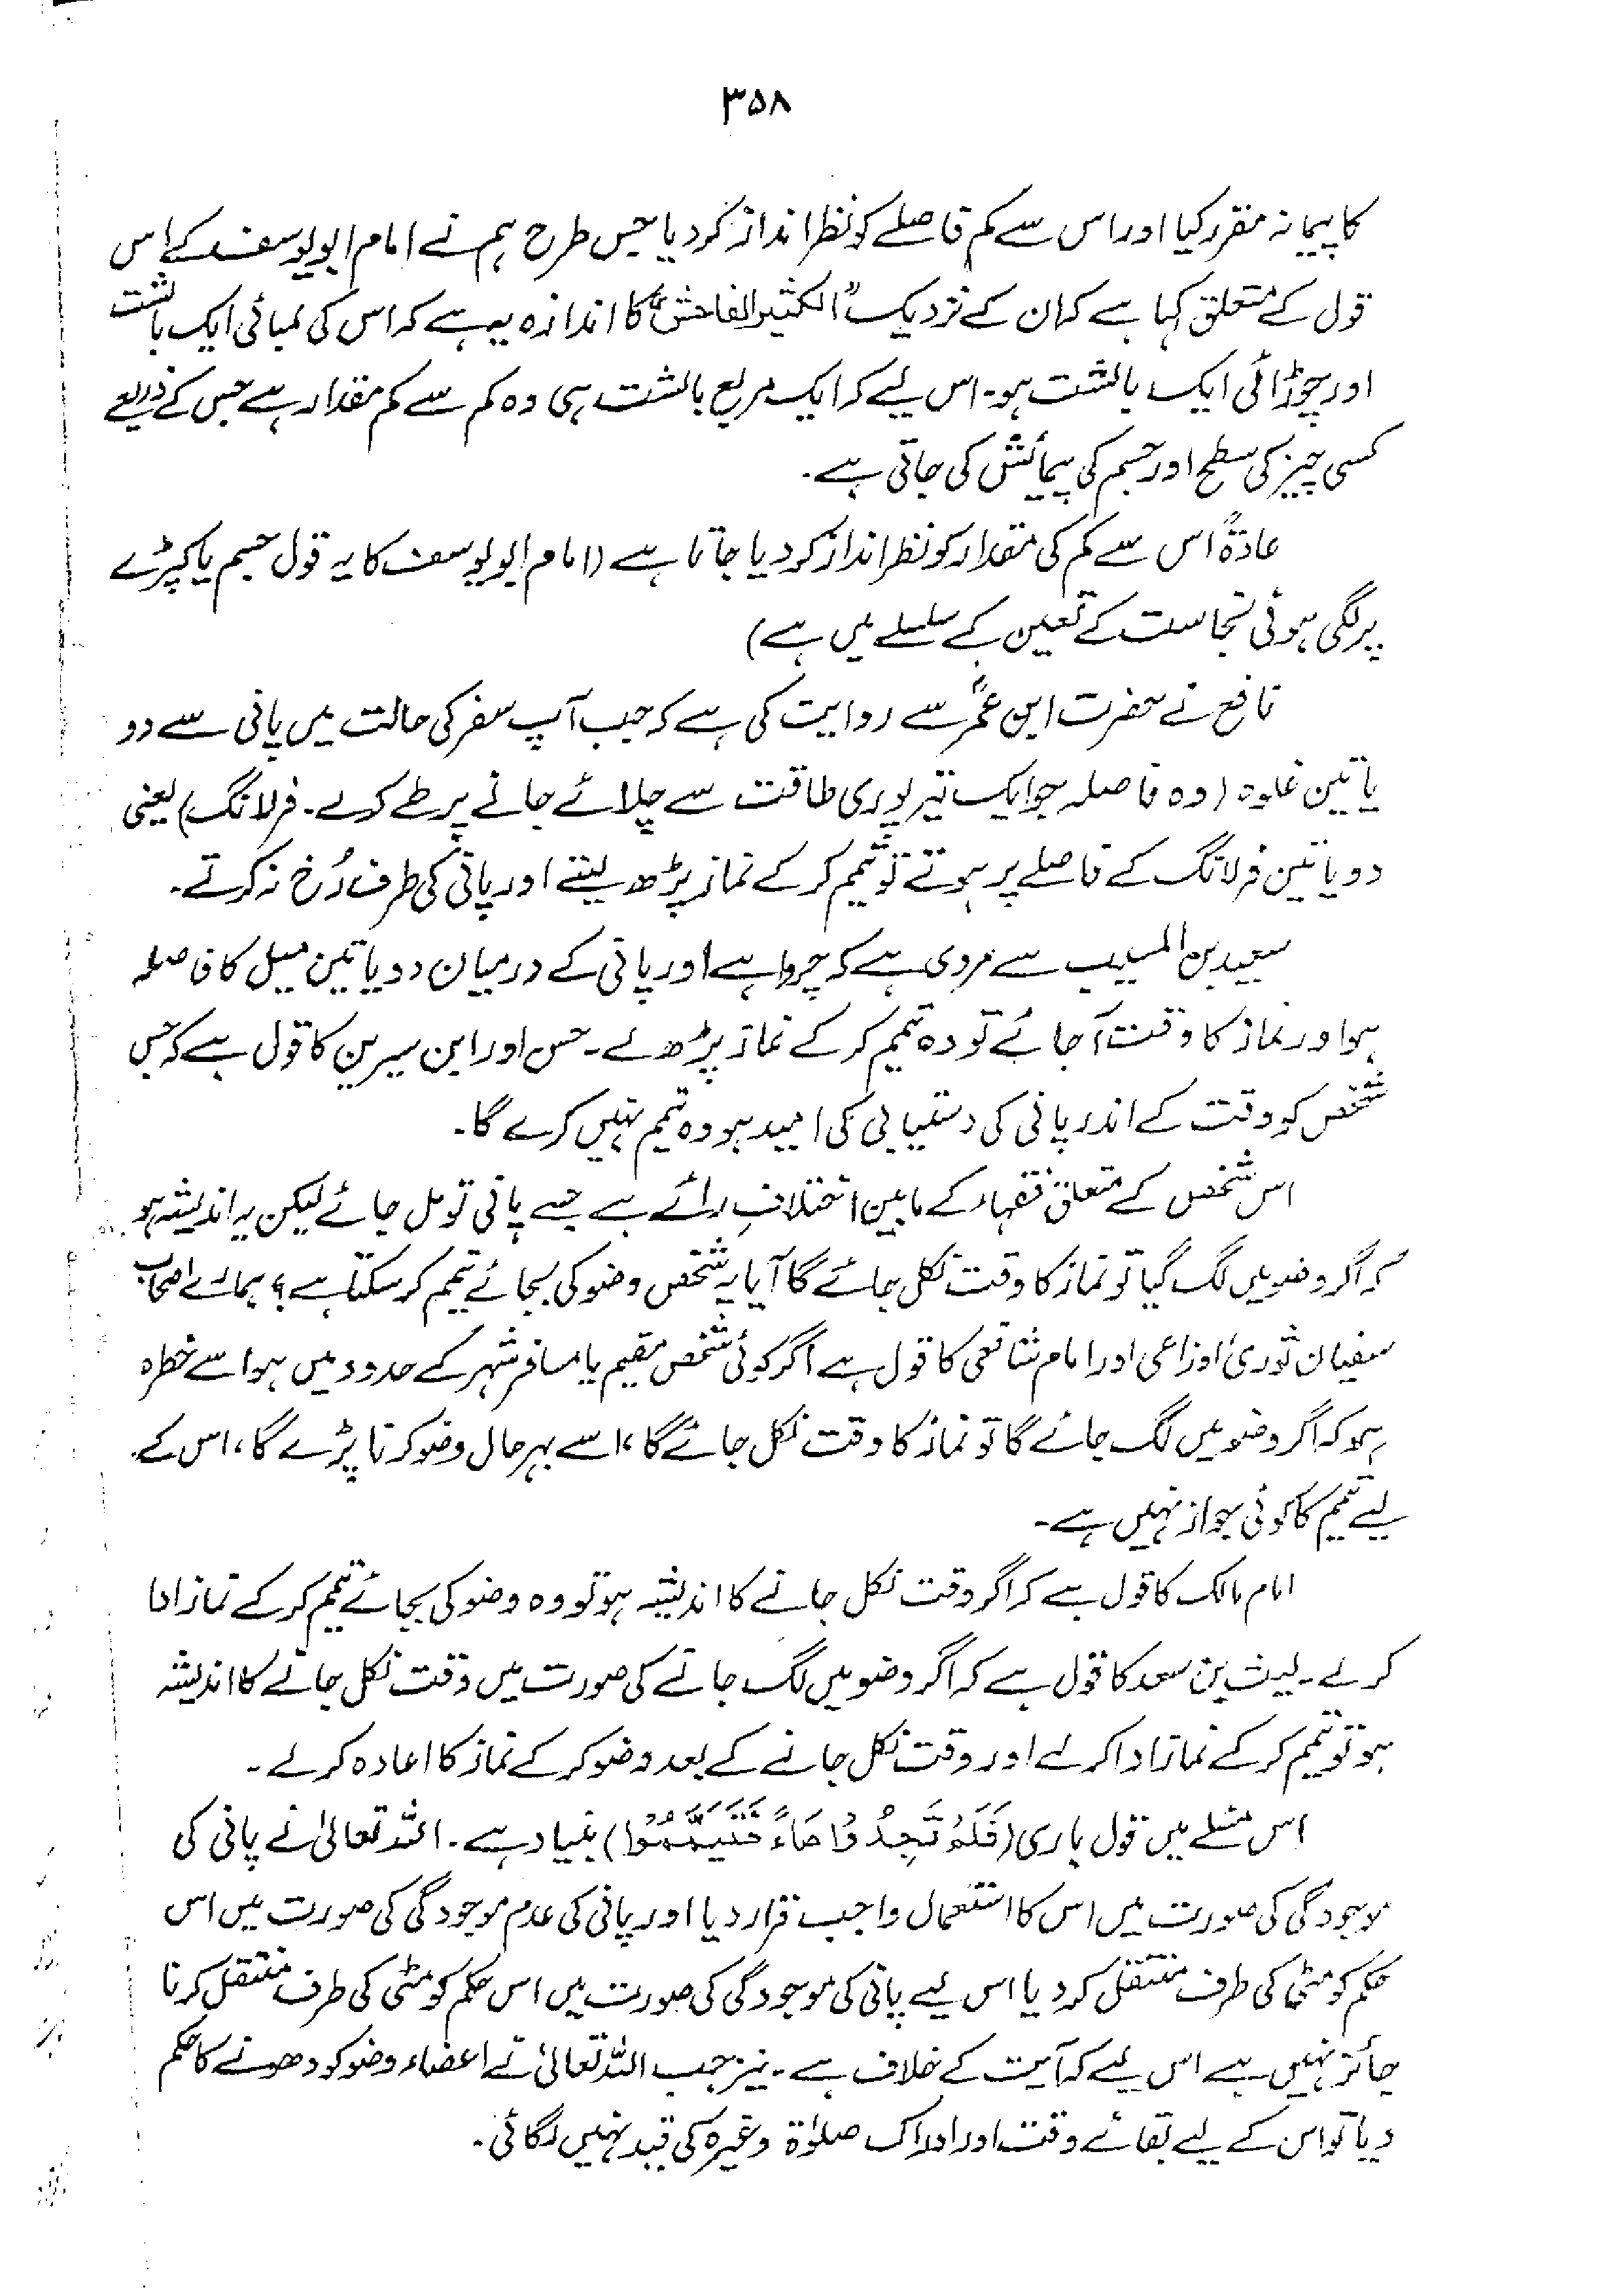 ۳۵۸
کا پیمانہ مقرر کیا اور اس سے کم فاصلے کو نظر انداز کر دیا جس طرح ہم نے امام ابو یوسف کے اس
قول کے متعلق کہا ہے کہ ان کے نزدیک "الکثیر الفاحش" کا اندازہ یہ ہے کہ اس کی لمبائی ایک بالشت
اور چوڑائی ایک بالشت ہو۔ اس لیے کہ ایک مربع بالشت ہی وہ کم سے کم مقدار ہے جس کے ذریعے
کسی چیز کی سطح اور جسم کی پیمائش کی جاتی ہے۔
عادۃً اس سے کم کی مقدار کو نظر انداز کر دیا جاتا ہے (امام ابو یوسف کا یہ قول جسم یا کپڑے
پر لگی ہوئی نجاست کے تعین کے سلسلے میں ہے)
نافع نے حضرت ابن عمرؓ سے روایت کی ہے کہ جب آپ سفر کی حالت میں پانی سے دو
یا تین غلوہ (وہ فاصلہ جو ایک تیر پوری طاقت سے چلائے جانے پر طے کرے۔ فرلانگ) یعنی
دو یا تین فرلانگ کے فاصلے پر ہوتے تو تیمم کر کے نماز پڑھ لیتے اور پانی کی طرف رُخ نہ کرتے۔
سعید بن المسیب سے مروی ہے کہ چرواہے اور پانی کے درمیان دو یا تین میل کا فاصلہ
ہو اور نماز کا وقت آ جائے تو وہ تیمم کر کے نماز پڑھ لے۔ حسن اور ابن سیرین کا قول ہے کہ جس
شخص کو وقت کے اندر پانی کی دستیابی کی امید ہو وہ تیمم نہیں کرے گا۔
اس شخص کے متعلق فقہاء کے مابین اختلافِ رائے ہے جسے پانی تو مل جائے لیکن یہ اندیشہ ہو
کہ اگر وضو میں لگ گیا تو نماز کا وقت نکل جائے گا آیا یہ شخص وضو کی بجائے تیمم کر سکتا ہے؟ ہمارے اصحاب
سفیان ثوری، اوزاعی اور امام شافعی کا قول ہے اگر کوئی شخص مقیم یا مسافر شہر کے حدود میں ہو اسے خطرہ
ہو کہ اگر وضو میں لگ جائے گا تو نماز کا وقت نکل جائے گا، اسے بہر حال وضو کرنا پڑے گا، اس کے
لیے تیمم کا کوئی جواز نہیں ہے۔
امام مالک کا قول ہے کہ اگر وقت نکل جانے کا اندیشہ ہو تو وہ وضو کی بجائے تیمم کر کے نماز ادا
کر لے۔ لیث بن سعد کا قول ہے کہ اگر وضو میں لگ جانے کی صورت میں وقت نکل جانے کا اندیشہ
ہو تو تیمم کر کے نماز ادا کر لے اور وقت نکل جانے کے بعد وضو کر کے نماز کا اعادہ کر لے۔
اس مسئلے میں قول باری (فَلَمْ تَجِدُوْا مَاءً فَتَيَمَّمُوْا) بنیاد ہے۔ اللہ تعالیٰ نے پانی کی
موجودگی کی صورت میں اس کا استعمال واجب قرار دیا اور پانی کی عدم موجودگی کی صورت میں اس
حکم کو مٹی کی طرف منتقل کر دیا اس لیے پانی کی موجودگی کی صورت میں اس حکم کو مٹی کی طرف منتقل کرنا
جائز نہیں ہے اس لیے کہ آیت کے خلاف ہے۔ نیز جب اللہ تعالیٰ نے اعضاء وضو کو دھونے کا حکم
دیا تو اس کے لیے بقائے وقت اور ادراک صلوٰۃ وغیرہ کی قید نہیں لگائی۔